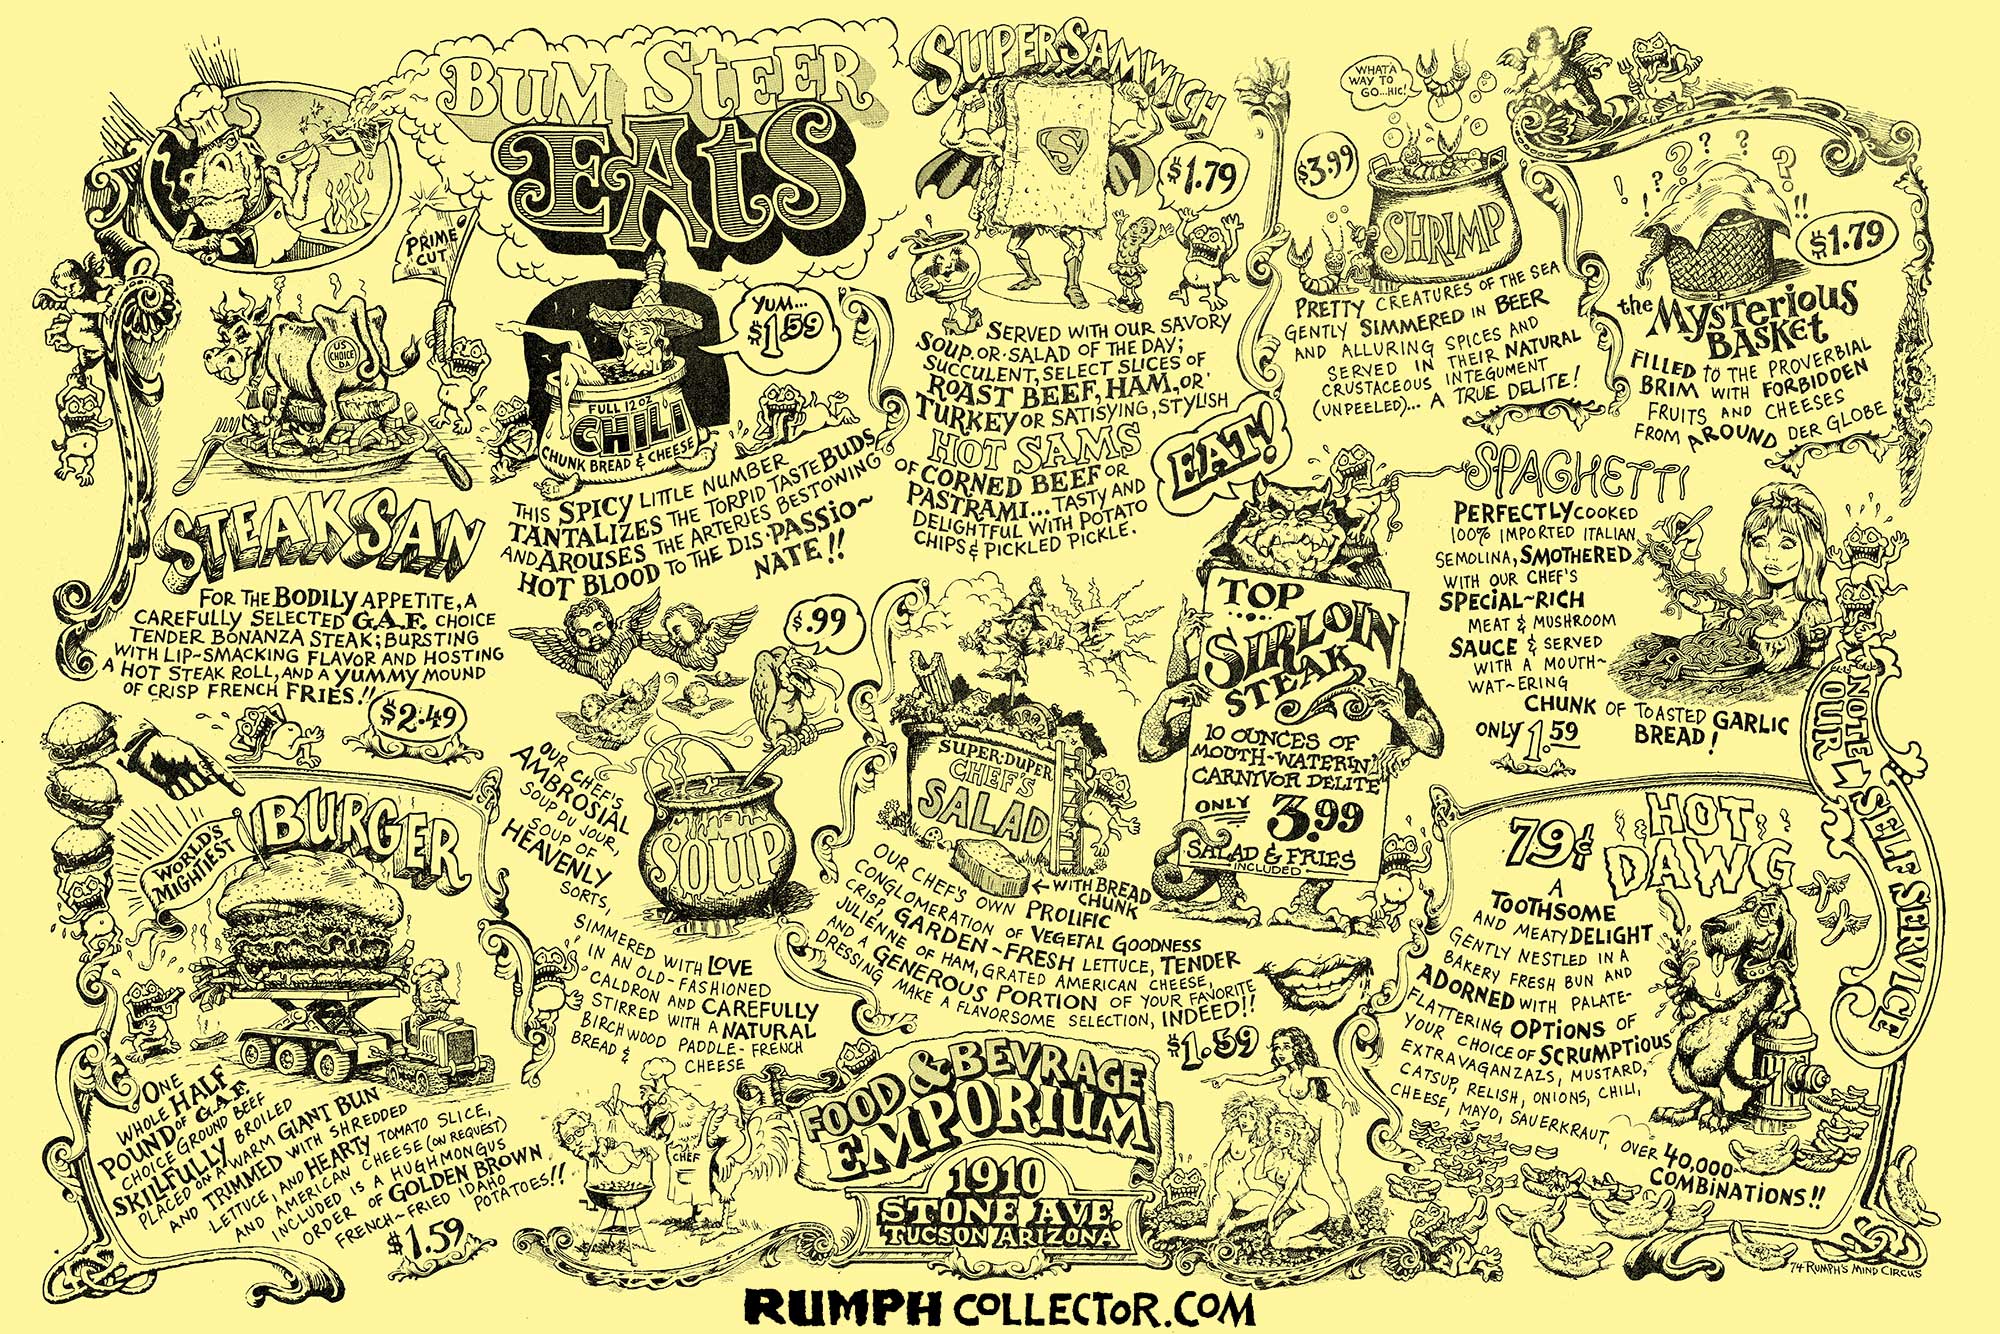 BUM STEER
EATS
PRIME
CUT
US
CHOICE
DA
STEAK SAN
FOR THE BODILY APPETITE, A
CAREFULLY SELECTED G.A.F. CHOICE
TENDER BONANZA STEAK; BURSTING
WITH LIP~SMACKING FLAVOR AND HOSTING
A HOT STEAK ROLL, AND A YUMMY MOUND
OF CRISP FRENCH FRIES!!
$2.49
YUM...
$1.59
FULL 12 OZ
CHILI
CHUNK BREAD & CHEESE
THIS SPICY LITTLE NUMBER
TANTALIZES THE TORPID TASTE BUDS
AND AROUSES THE ARTERIES BESTOWING
HOT BLOOD TO THE DIS·PASSIO~
NATE!!
SUPER SAMWICH
S
$1.79
SERVED WITH OUR SAVORY
SOUP OR SALAD OF THE DAY;
SUCCULENT, SELECT SLICES OF
ROAST BEEF, HAM, OR
TURKEY OR SATISYING, STYLISH
HOT SAMS
OF CORNED BEEF OR
PASTRAMI... TASTY AND
DELIGHTFUL WITH POTATO
CHIPS & PICKLED PICKLE.
WHAT'A
WAY TO
GO...HIC!
$3.99
SHRIMP
PRETTY CREATURES OF THE SEA
GENTLY SIMMERED IN BEER
AND ALLURING SPICES AND
SERVED IN THEIR NATURAL
CRUSTACEOUS INTEGUMENT
(UNPEELED)... A TRUE DELITE!
! ? ? ? ? !!
$1.79
the MYSTERIOUS
BASKET
FILLED TO THE PROVERBIAL
BRIM WITH FORBIDDEN
FRUITS AND CHEESES
FROM AROUND DER GLOBE
EAT!
TOP
SIRLOIN
STEAK
10 OUNCES OF
MOUTH-WATERIN'
CARNIVOR DELITE
ONLY 3.99
SALAD & FRIES
INCLUDED
SPAGHETTI
PERFECTLY COOKED
100% IMPORTED ITALIAN
SEMOLINA, SMOTHERED
WITH OUR CHEF'S
SPECIAL~RICH
MEAT & MUSHROOM
SAUCE & SERVED
WITH A MOUTH~
WAT~ERING
CHUNK OF TOASTED GARLIC
BREAD!
ONLY 1.59
NOTE
OUR SELF SERVICE
WORLD'S
MIGHTIEST
BURGER
ONE
WHOLE HALF
POUND OF G.A.F.
CHOICE GROUND BEEF
SKILFULLY BROILED
PLACED ON A WARM GIANT BUN
AND TRIMMED WITH SHREDDED
LETTUCE, AND HEARTY TOMATO SLICE,
AND AMERICAN CHEESE (ON REQUEST)
INCLUDED IS A HUGHMONGUS
ORDER OF GOLDEN BROWN
FRENCH~FRIED IDAHO
POTATOES!!
$1.59
$.99
SOUP
OUR CHEF'S
AMBROSIAL
SOUP DU JOUR,
SOUP OF
HEAVENLY
SORTS,
SIMMERED WITH LOVE
IN AN OLD~FASHIONED
CALDRON AND CAREFULLY
STIRRED WITH A NATURAL
BIRCHWOOD PADDLE~FRENCH
BREAD &
CHEESE
CHEF
SUPER·DUPER
CHEF'S
SALAD
WITH BREAD
CHUNK
OUR CHEF'S OWN PROLIFIC
CONGLOMERATION OF VEGETAL GOODNESS
CRISP, GARDEN~FRESH LETTUCE, TENDER
JULIENNE OF HAM, GRATED AMERICAN CHEESE,
AND A GENEROUS PORTION OF YOUR FAVORITE
DRESSING MAKE A FLAVORSOME SELECTION, INDEED!!
$1.59
FOOD & BEVRAGE
EMPORIUM
1910
STONE AVE.
TUCSON ARIZONA
79¢
HOT
DAWG
A
TOOTHSOME
AND MEATY DELIGHT
GENTLY NESTLED IN A
BAKERY FRESH BUN AND
ADORNED WITH PALATE-
FLATTERING OPTIONS OF
YOUR CHOICE OF SCRUMPTIOUS
EXTRAVAGANZAZS, MUSTARD,
CATSUP, RELISH, ONIONS, CHILI,
CHEESE, MAYO, SAUERKRAUT, OVER 40,000~
COMBINATIONS!!
74 RUMPH'S MIND CIRCUS
RUMPHCOLLECTOR.COM